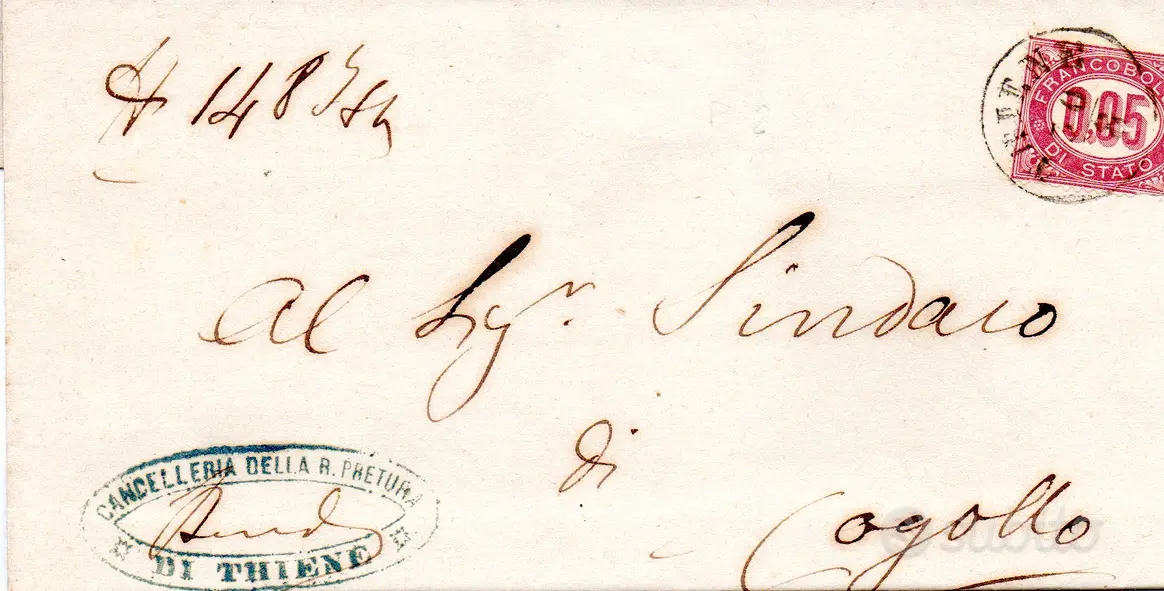 N 148
THIENE
FRANCOBOL
0.05
DI STATO
Al Sigr. Sindaco
di
Cogollo
CANCELLERIA DELLA R. PRETURA
DI THIENE
subito